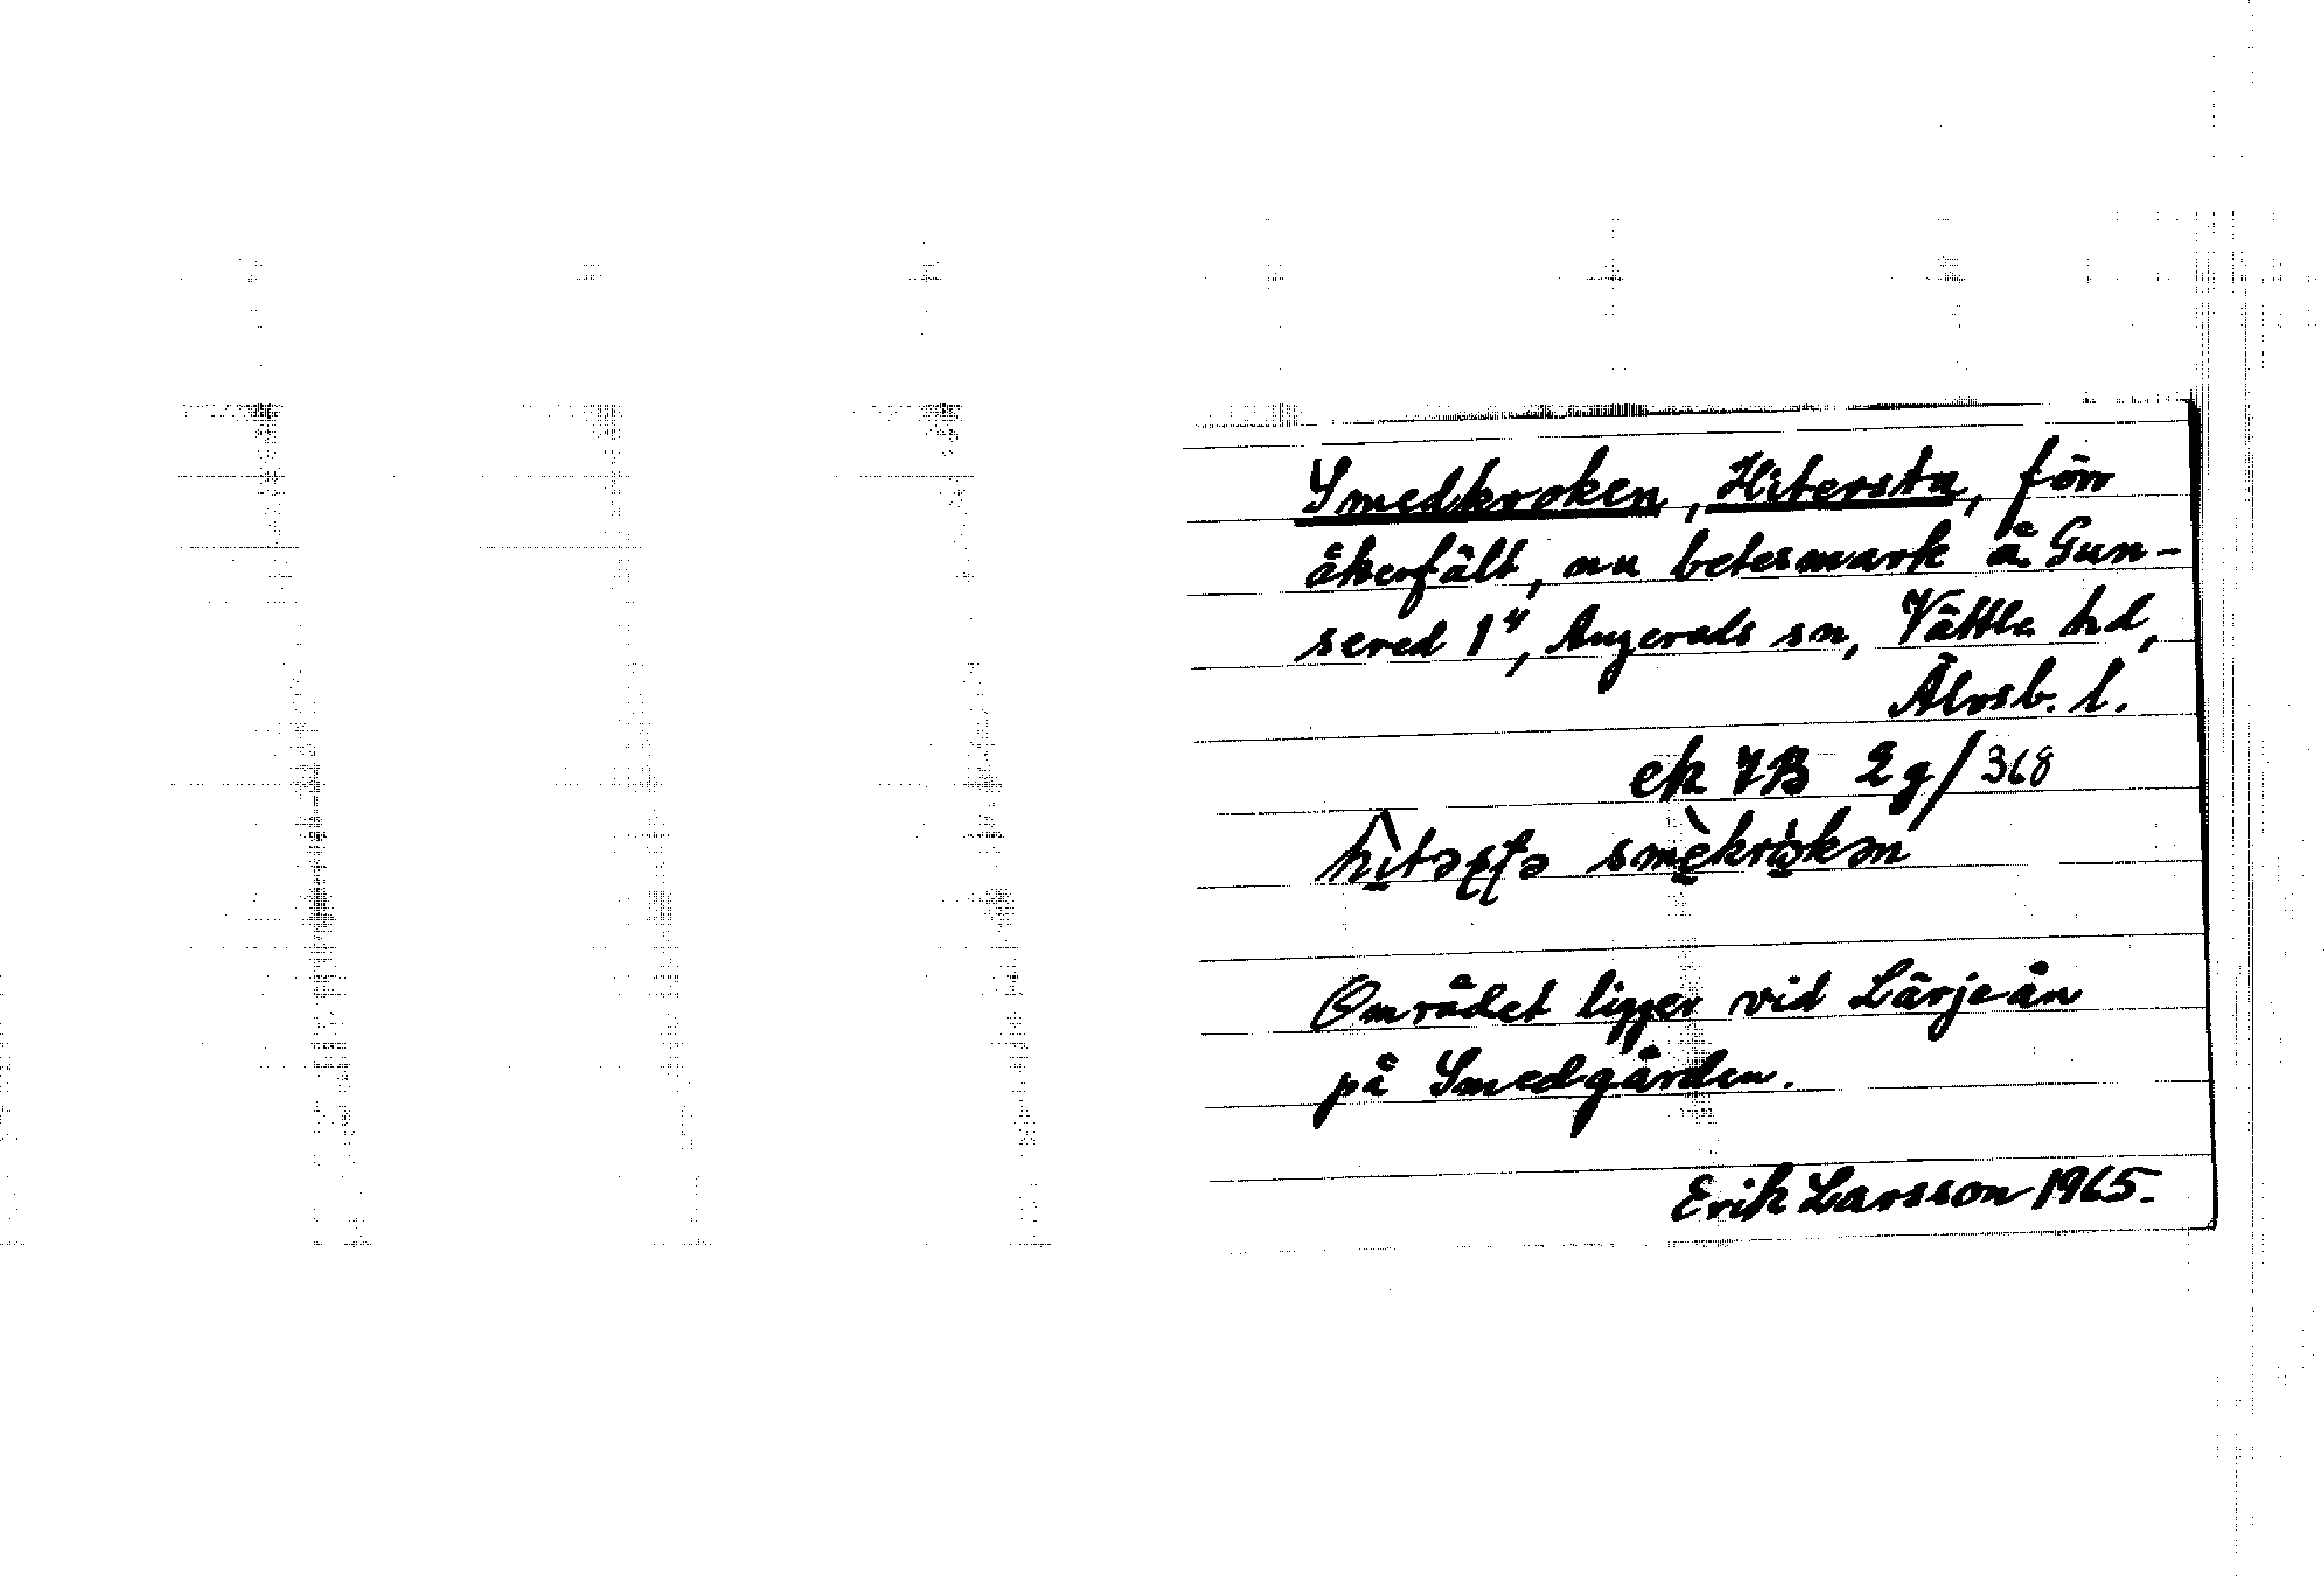 Smedkroken, Hitersta, förr
åkerfält, nu betesmark å Gun-
sered 1⁴, Angereds sn, Vättle hd,
Älvsb. l.
ek 7B 2g/368
Området ligger vid Lärjeån
på Smedgården.
Erik Larsson 1965.